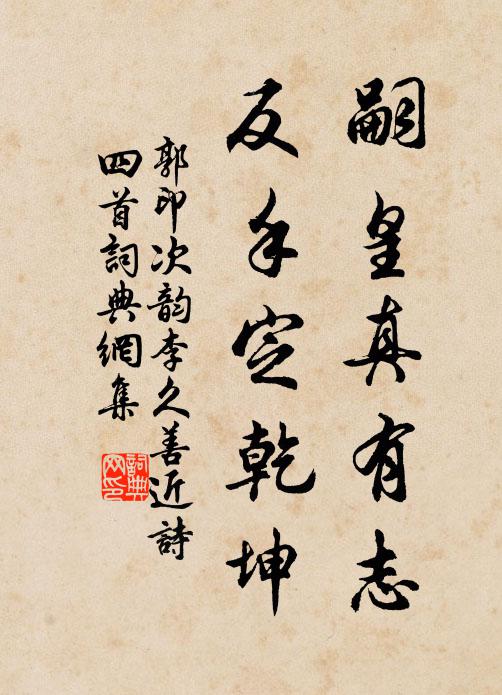 嗣皇真有志
反手定乾坤
郭印次韵李久善近詩
四首詞典網集
詞典网印